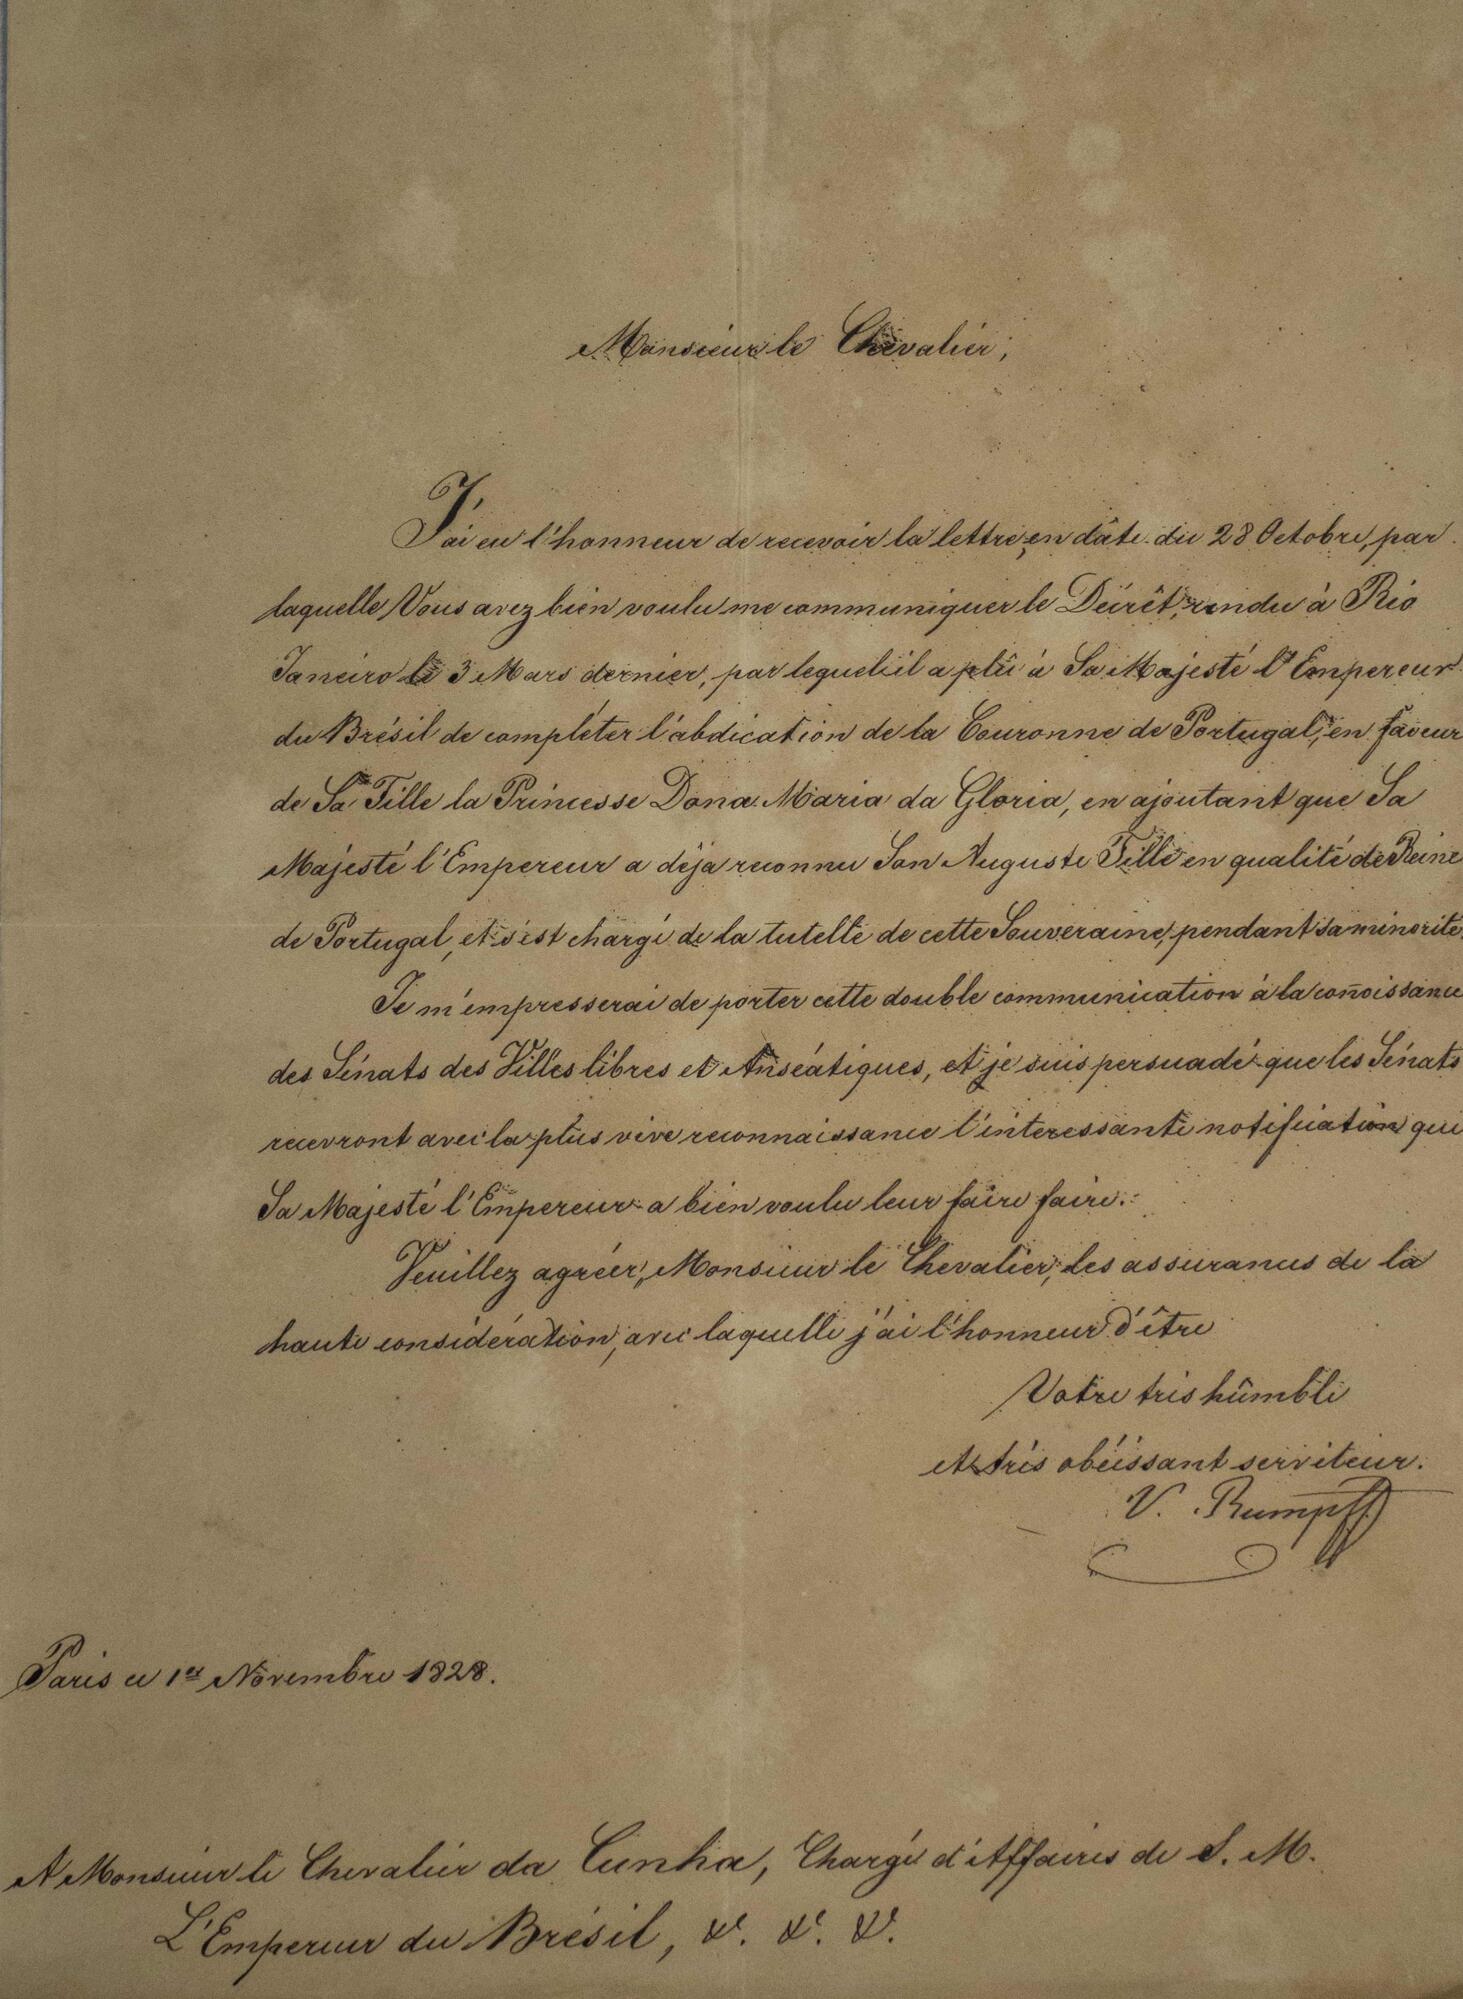 Monsieur le Chevalier,
J'ai eu l'honneur de recevoir la lettre, en dâte du 28 Octobre, par
laquelle Vous avez bien voulu me communiquer le Décrêt, rendu à Rio
Janeiro le 3 Mars dernier, par lequel il a plû à Sa Majesté l'Empereur
du Brésil de compléter l'abdication de la Couronne de Portugal, en faveur
de Sa Fille la Princesse Dona Maria da Gloria, en ajoutant que Sa
Majesté l'Empereur a déja reconnu Son Auguste Fille en qualité de Reine
de Portugal, et s'est chargé de la tutelle de cette Souveraine, pendant sa minorité.
Je m'empresserai de porter cette double communication à la coñoissance
des Sénats des Villes libres et Anséatiques, et je suis persuadé que les Sénats
recevront avec la plus vive reconnaissance l'interessante notification que
Sa Majesté l'Empereur a bien voulu leur faire faire.
Veuillez agréer, Monsieur le Chevalier, les assurances de la
haute considération, avec laquelle j'ai l'honneur d'être
Votre très humble
et très obéissant serviteur.
V. Rumpff
Paris ce 1er Novembre 1828.
A Monsieur le Chevalier da Cunha, Chargé d'Affaires de S. M.
L'Empereur du Brésil, &. &. &.